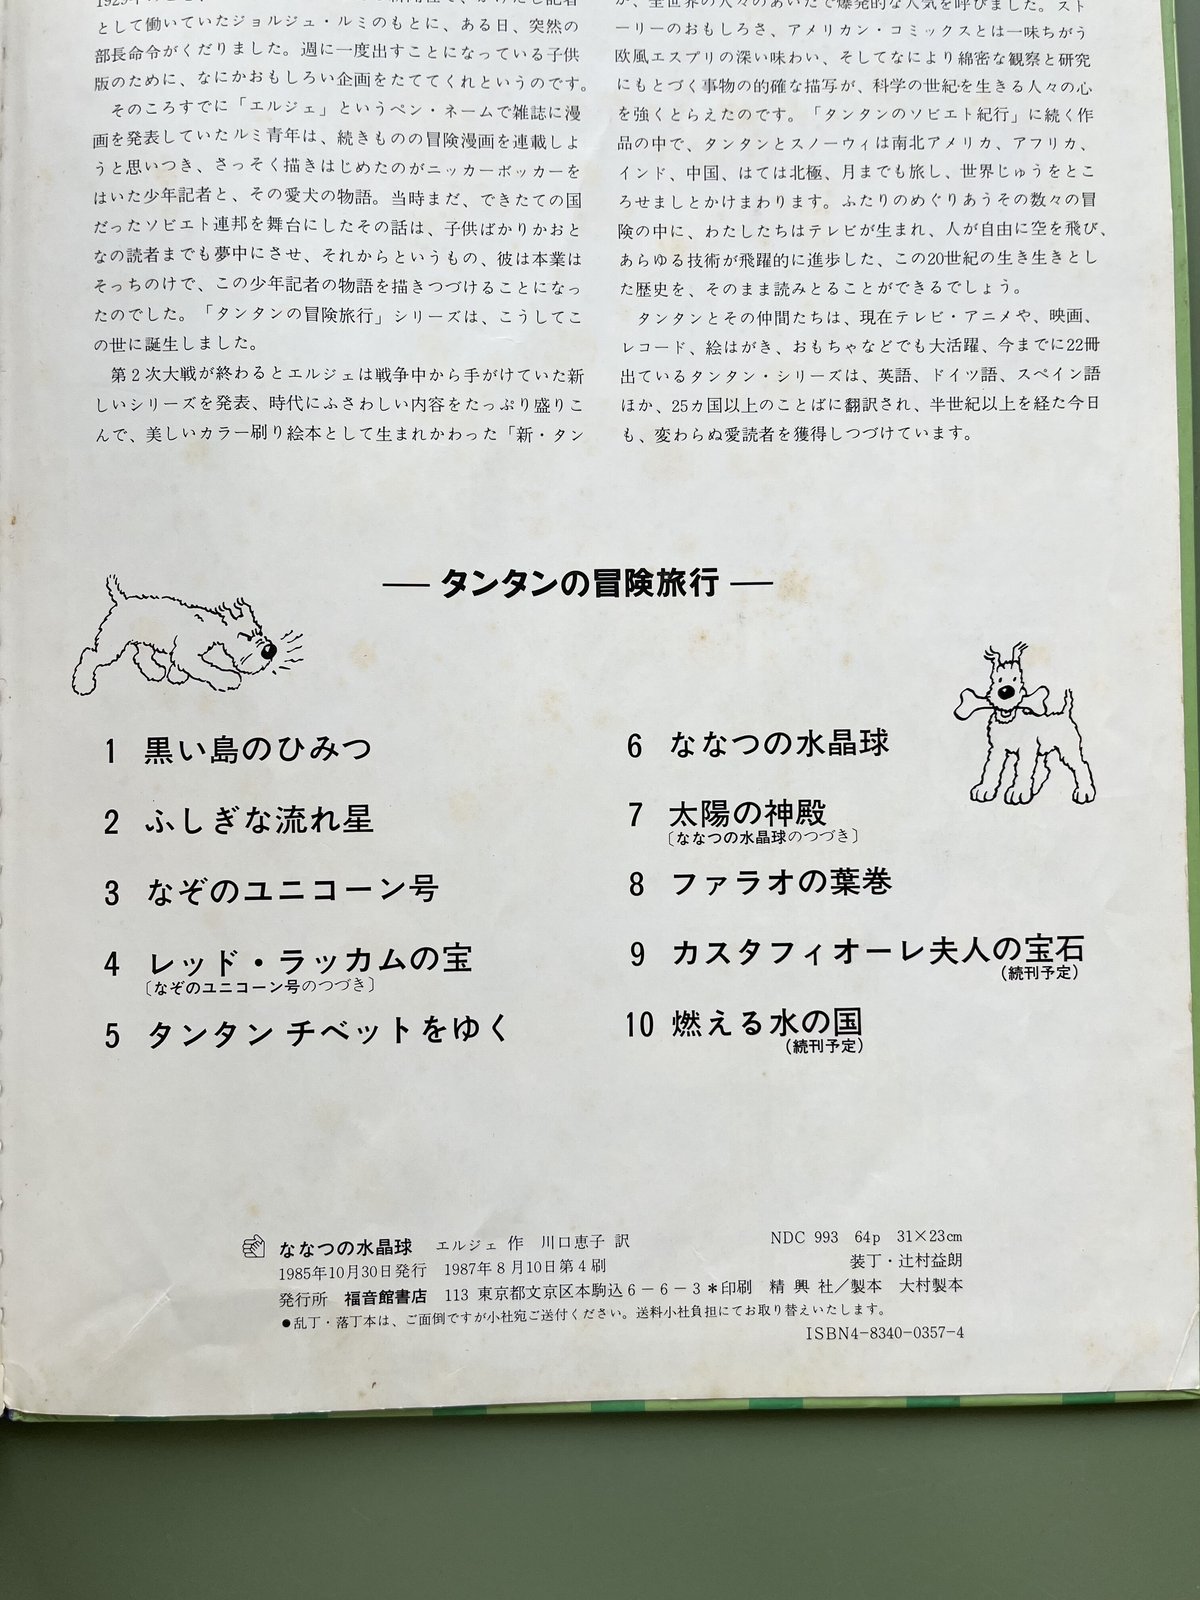 として働いていたジョルジュ・ルミのもとに、ある日、突然の
部長命令がくだりました。週に一度出すことになっている子供
版のために、なにかおもしろい企画をたててくれというのです。
そのころすでに「エルジェ」というペン・ネームで雑誌に漫
画を発表していたルミ青年は、続きものの冒険漫画を連載しよ
うと思いつき、さっそく描きはじめたのがニッカーボッカーを
はいた少年記者と、その愛犬の物語。当時まだ、できたての国
だったソビエト連邦を舞台にしたその話は、子供ばかりかおと
なの読者までも夢中にさせ、それからというもの、彼は本業は
そっちのけで、この少年記者の物語を描きつづけることになっ
たのでした。「タンタンの冒険旅行」シリーズは、こうしてこ
の世に誕生しました。
第2次大戦が終わるとエルジェは戦争中から手がけていた新
しいシリーズを発表、時代にふさわしい内容をたっぷり盛りこ
んで、美しいカラー刷り絵本として生まれかわった「新・タン
が、全世界の人々のあいだで爆発的な人気を呼びました。スト
ーリーのおもしろさ、アメリカン・コミックスとは一味ちがう
欧風エスプリの深い味わい、そしてなにより綿密な観察と研究
にもとづく事物の的確な描写が、科学の世紀を生きる人々の心
を強くとらえたのです。「タンタンのソビエト紀行」に続く作
品の中で、タンタンとスノーウィは南北アメリカ、アフリカ、
インド、中国、はては北極、月までも旅し、世界じゅうをとこ
ろせましとかけまわります。ふたりのめぐりあうその数々の冒
険の中に、わたしたちはテレビが生まれ、人が自由に空を飛び、
あらゆる技術が飛躍的に進歩した、この20世紀の生き生きとし
た歴史を、そのまま読みとることができるでしょう。
タンタンとその仲間たちは、現在テレビ・アニメや、映画、
レコード、絵はがき、おもちゃなどでも大活躍、今までに22冊
出ているタンタン・シリーズは、英語、ドイツ語、スペイン語
ほか、25カ国以上のことばに翻訳され、半世紀以上を経た今日
も、変わらぬ愛読者を獲得しつづけています。
― タンタンの冒険旅行 ―
1 黒い島のひみつ
2 ふしぎな流れ星
3 なぞのユニコーン号
4 レッド・ラッカムの宝
〔なぞのユニコーン号のつづき〕
5 タンタン チベットをゆく
6 ななつの水晶球
7 太陽の神殿
〔ななつの水晶球のつづき〕
8 ファラオの葉巻
9 カスタフィオーレ夫人の宝石
(続刊予定)
10 燃える水の国
(続刊予定)
ななつの水晶球 エルジェ 作 川口恵子 訳
1985年10月30日発行 1987年8月10日第4刷
発行所 福音館書店 113 東京都文京区本駒込6-6-3*印刷 精興社/製本 大村製本
●乱丁・落丁本は、ご面倒ですが小社宛ご送付ください。送料小社負担にてお取り替えいたします。
NDC 993 64p 31×23cm
装丁・辻村益朗
ISBN4-8340-0357-4